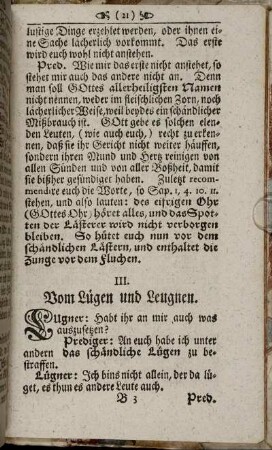 (21)
lustige Dinge erzehlet werden, oder ihnen ei-
ne Sache lächerlich vorkommt. Das erste
wird euch wohl nicht anstehen.
Pred. Wie mir das erste nicht anstehet, so
stehet mir auch das andere nicht an. Denn
man soll GOttes allerheiligsten Namen
nicht nennen, weder im fleischlichen Zorn, noch
lächerlicher Weise, weil beydes ein schändlicher
Mißbrauch ist. GOtt gebe es solchen elen-
den Leuten, (wie auch euch,) recht zu erken-
nen, daß sie ihr Gericht nicht weiter häuffen,
sondern ihren Mund und Hertz reinigen von
allen Sünden und von aller Boßheit, damit
sie bißher gesündiget haben. Zuletzt recom-
mendire euch die Worte, so Sap. 1, 4. 10. 11.
stehen, und also lauten: des eifrigen Ohr
(GOttes Ohr) höret alles, und das Spot-
ten der Lästerer wird nicht verborgen
bleiben. So hütet euch nun vor dem
schändlichen Lästern, und enthaltet die
Zunge vor dem Fluchen.
III.
Vom Lügen und Leugnen.
LUgner: Habt ihr an mir auch was
auszusetzen?
Prediger: An euch habe ich unter
andern das schändliche Lügen zu be-
straffen.
Lügner: Ich bins nicht allein, der da lü-
get, es thun es andere Leute auch.
B 3 Pred.